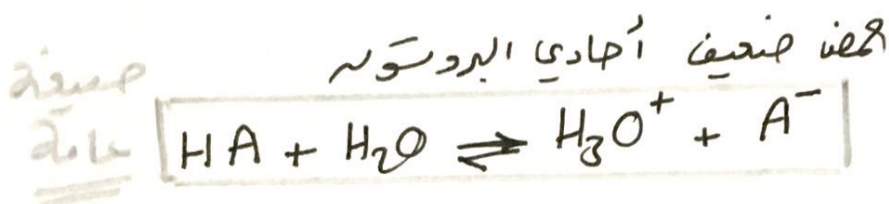 حمض ضعيف أحادي البروتون
صيغة
عامة
HA + H₂O ⇌ H₃O⁺ + A⁻